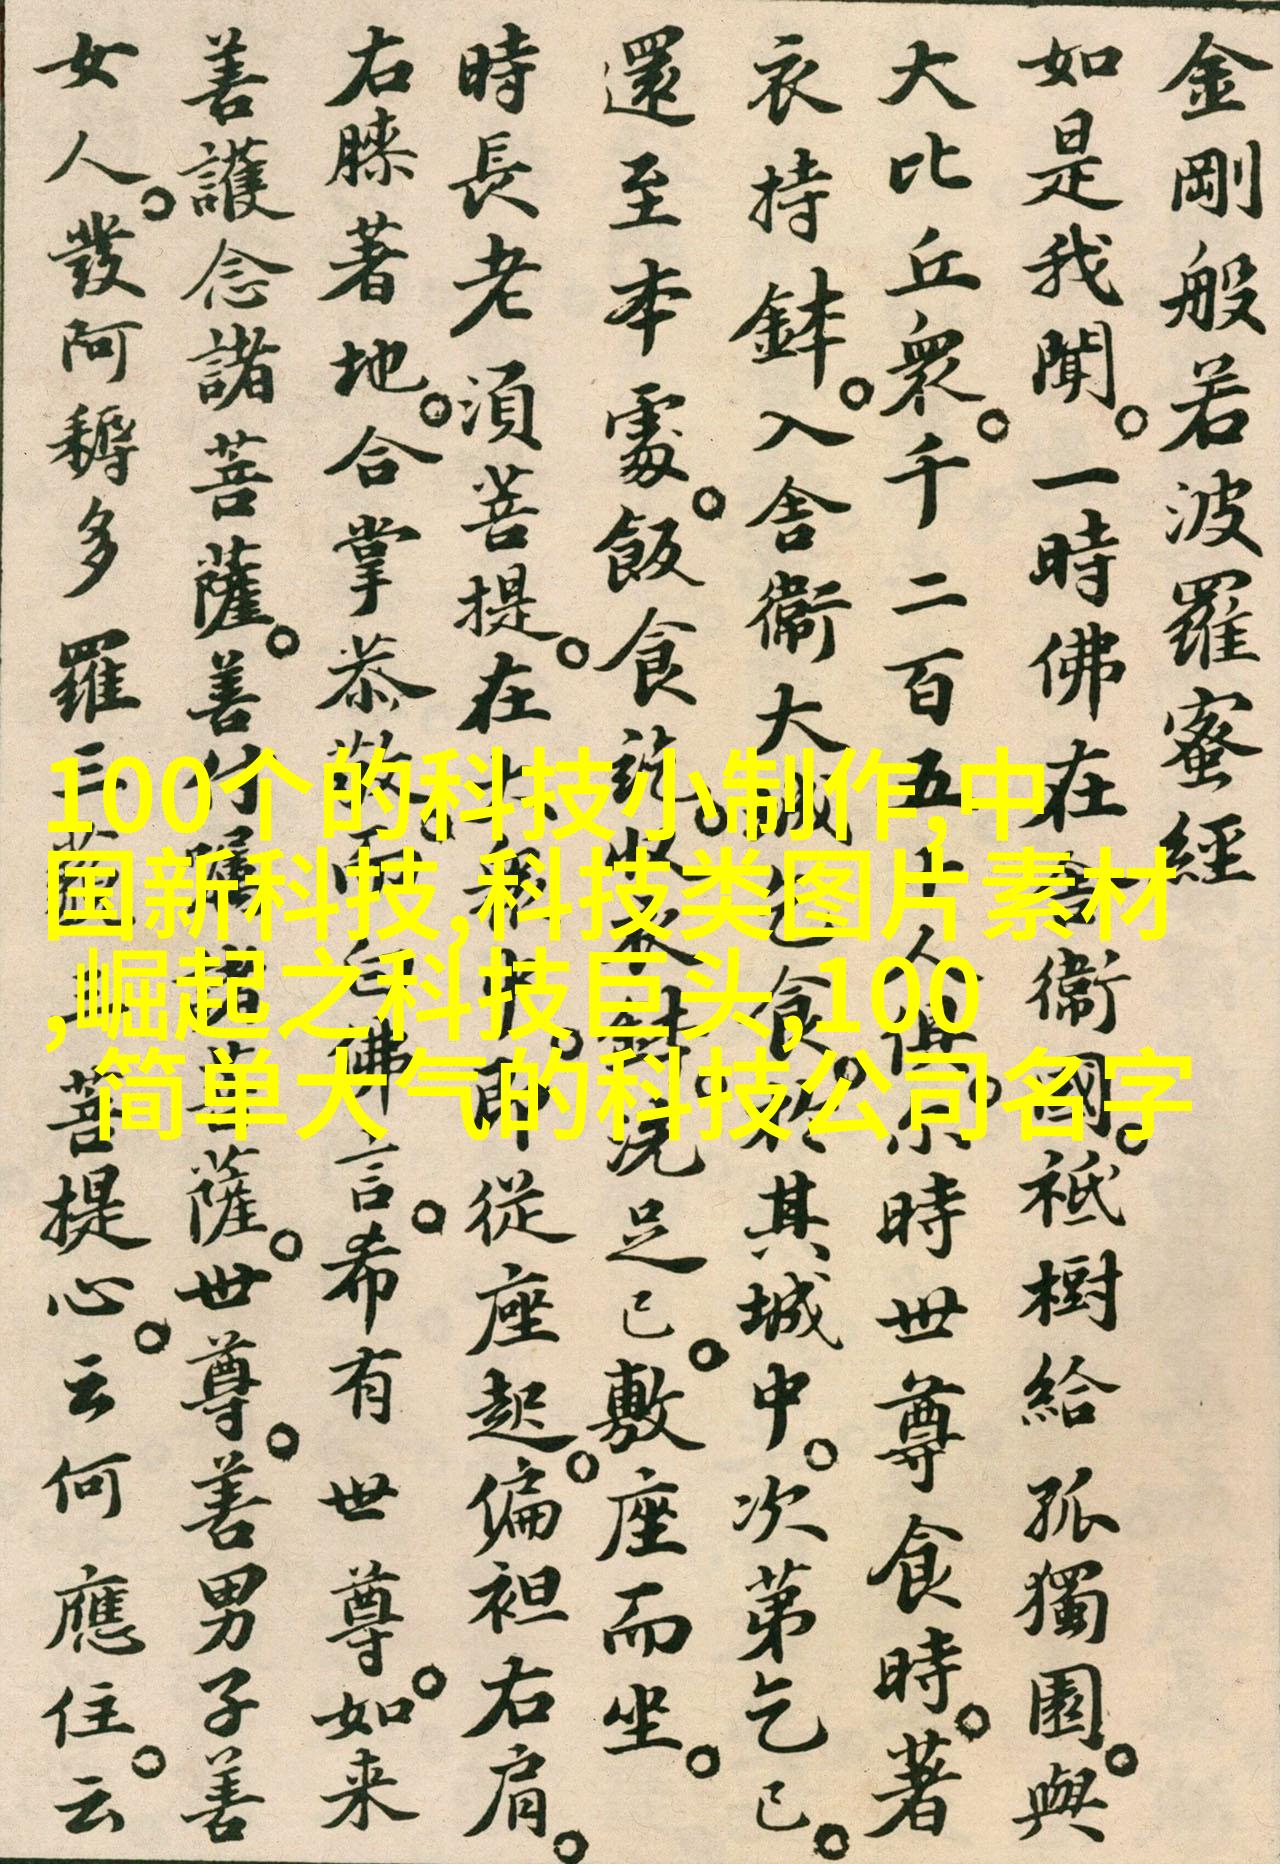 金剛般若波羅蜜經
如是我聞。一時佛在舍衞國。祇樹給孤獨園。與
大比丘衆。千二百五十人俱。尒時世尊食時。著
衣持鉢。入舍衞大城乞食。於其城中。次第乞已。
還至本處。飯食訖。收衣鉢。洗足已。敷座而坐。
時長老湏菩提。在大衆中。即從座起。偏袒右肩。
右膝著地。合掌恭敬。而白佛言。希有世尊。如来
善護念諸菩薩。善付囑諸菩薩。世尊。善男子善
女人。發阿耨多羅三藐三菩提心。云何應住。云
100个的科技小制作,中
国新科技,科技类图片素材
,崛起之科技巨头,100
简单大气的科技公司名字